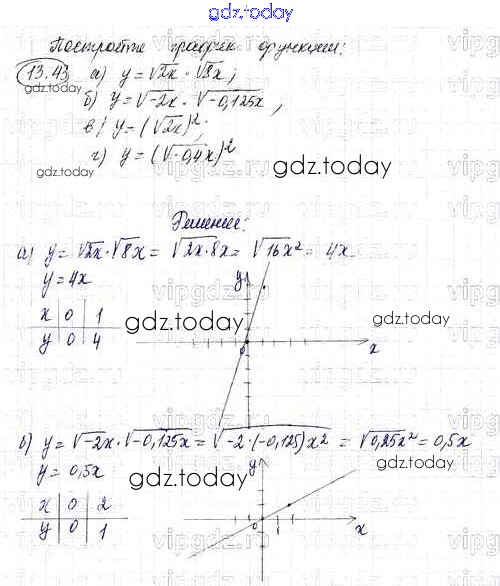 gdz.today
Постройте график функции:
13.43 а) y = √2x · √8x;
gdz.today
б) y = √-2x · √-0,125x;
в) y = (√2x)²;
г) y = (√-0,4x)²
gdz.today
gdz.today
Решение:
а) y = √2x · √8x = √2x·8x = √16x² = 4x
y = 4x
x 0 1
y 0 4
y
0
x
gdz.today
gdz.today
б) y = √-2x · √-0,125x = √-2·(-0,125)x² = √0,25x² = 0,5x
y = 0,5x
x 0 2
y 0 1
y
0
x
gdz.today
gdz.today